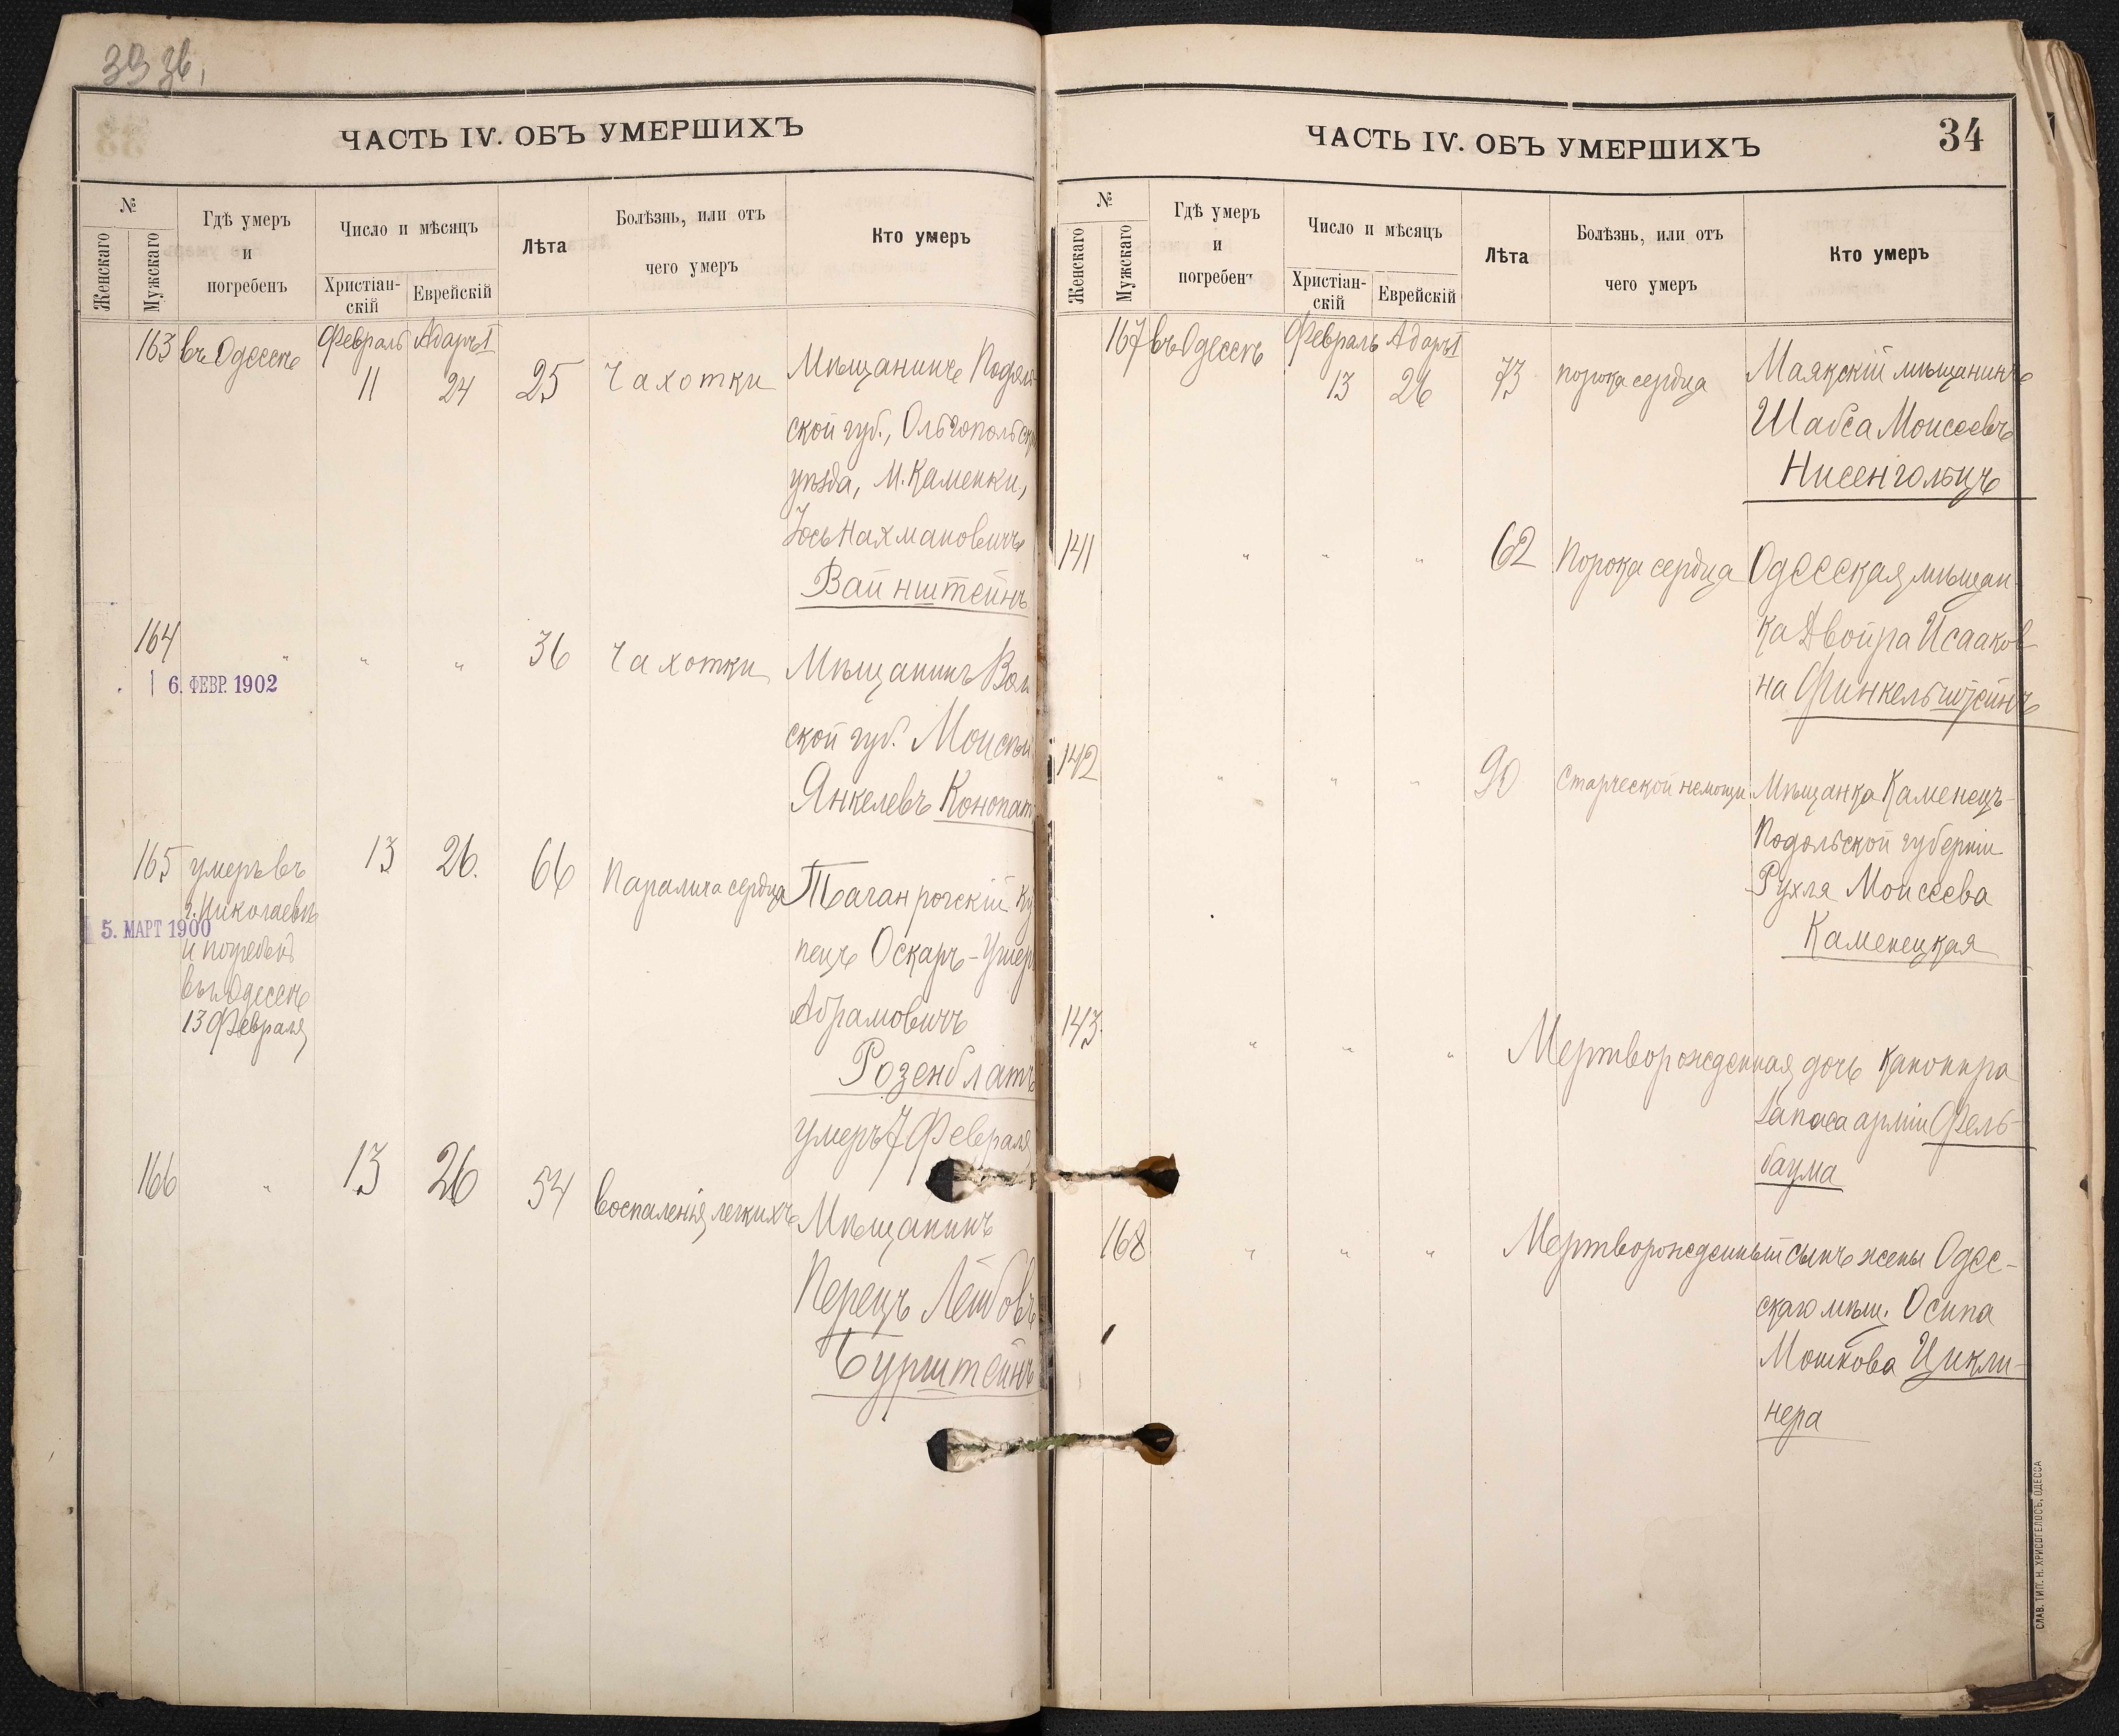 ЧАСТЬ IV. ОБЪ УМЕРШИХЪ
№
Женскаго
Мужскаго
Гдѣ умеръ
и
погребенъ
Число и мѣсяцъ
Христіан-
скій
Еврейскій
Лѣта
Болѣзнь, или отъ
чего умеръ
Кто умеръ
163 въ Одессѣ Февраль Адаръ I
11 24 25 Чахотки Мѣщанинъ Подоль-
ской губ., Ольгопольск
уѣзда, М. Каменки,
Іось Нахмановичъ
Вайнштейнъ
164 " " " 36 Чахотки Мѣщанинъ Вол
6. ФЕВР. 1902
ской губ. Моисей
Янкелевъ Конопат
165 умеръ въ 13 26. 66 Паралича сердца Таганрогскій ку
г. Николаевѣ
5. МАРТ 1900
и погребенъ
въ г. Одессѣ
13 Февраля
пецъ Оскаръ-Ушер
Абрамовичъ
Розенблатъ
умеръ 7 Февраля
166 " 13 26 54 Воспаленія легкихъ Мѣщанинъ
Перецъ Лейбовъ
Бурштейнъ
ЧАСТЬ IV. ОБЪ УМЕРШИХЪ
34
№
Женскаго
Мужскаго
Гдѣ умеръ
и
погребенъ
Число и мѣсяцъ
Христіан-
скій
Еврейскій
Лѣта
Болѣзнь, или отъ
чего умеръ
Кто умеръ
167 въ Одессѣ Февраль Адаръ I
13 26 73 порока сердца Маякскій мѣщанинъ
Шабса Моисеевъ
Нисенгольцъ
141 " " " 62 Порока сердца Одесская мѣщан-
ка Двойра Исааков
на Финкельштейнъ
142 " " " 90 Старческой немощи Мѣщанка Каменецъ-
Подольской губерніи
Рухля Моисеева
Каменецкая
143. " " " Мертворожденная дочь канонира
запаса арміи Фель-
баума
168 " " " Мертворожденный сынъ жены Одес-
скаго мѣщ. Осипа
Мошкова Цикли-
нера
СЛАВ. ТИП. Н. ХРИСОГЕЛОСЪ, ОДЕССА